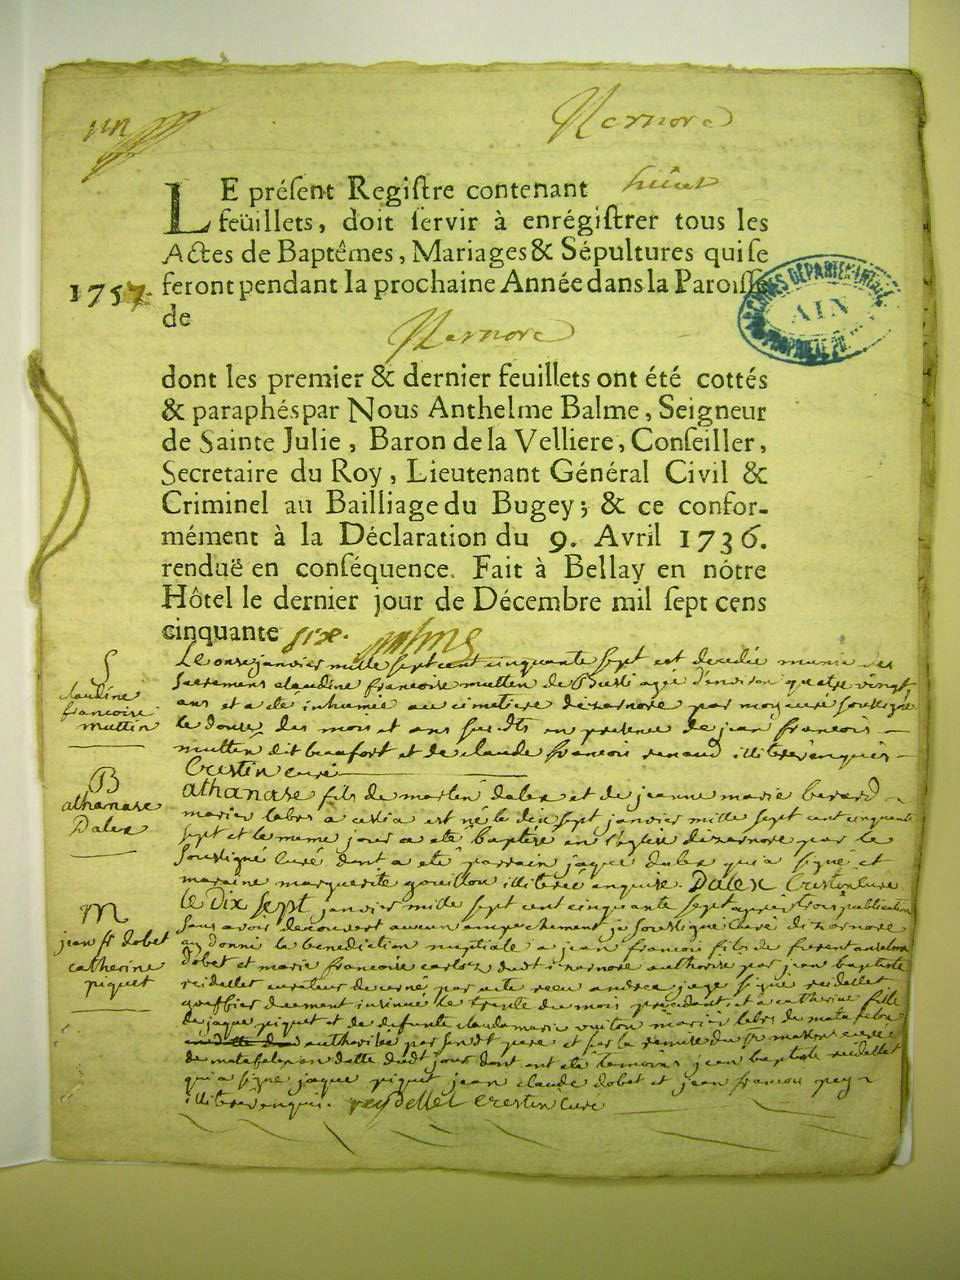 un
Nernore
LE préſent Regiſtre contenant huiut
feüillets, doit ſervir à enrégiſtrer tous les
Actes de Baptêmes, Mariages & Sépultures qui ſe
1757. feront pendant la prochaine Année dans la Paroiſſe
de
Nernore
ARCHIVES DÉPARTEMENTALES
AIN
PROPRIÉTÉ PU
dont les premier & dernier feuillets ont été cottés
& paraphés par Nous Anthelme Balme, Seigneur
de Sainte Julie, Baron de la Velliere, Conſeiller,
Secretaire du Roy, Lieutenant Général Civil &
Criminel au Bailliage du Bugey; & ce confor-
mément à la Déclaration du 9. Avril 1736.
renduë en conſéquence. Fait à Bellay en nôtre
Hôtel le dernier jour de Décembre mil ſept cens
cinquante six.
S
claudine
francoise
muttin
Le onze janvier mille sept cent cinquante sept est decedée munie des
sacremens claudine francoise muttin de agée d'environ quatre vingt
ans et a ete inhumée au cimetiere dizarnore par moy curé soussigné
le douze des mois et ans susdts en presence de jean francois
muttin dit beaufort et de claude francois renaud illiteres enquis
Crestin curé
B
athanase
Dalex
athanase fils de martin dalex et de jeanne marie berard
mariés labrs a est né le dix sept janvier mille sept cent cinquante
sept et le meme jour a eté baptisé en l'eglise dizarnore par le
soussigné curé dont a eté parrain jaque dalex qui a signé et
maraine marguerite gouillou illiterée enquise. Dalex Crestin curé
M
jean fr dobet
catherine
piquet
le Dix sept janvier mille sept cent cinquante sept apres trois publications
sans avoir decouvert aucun empechement je soussigné curé dizarnore
ay donné la benediction nuptiale a jean francois fils de
dobet et marie francoise dudt izarnore authorisé par jean baptiste
reidellet curateur decerné par acte recu andrea juge signé reidellet
greffier duement insinué le trente du mois precedant, et a catherine fille
de jaque piquet et de defunte claudamarie vuiton mariés labrs de matafelon
authorisée par sondt pere et sur la remise du sr curé
de matafelon en datte dudt jour dont ont eté temoins jean baptiste reidellet
qui a signé jaque piquet jean claude dobet et jean francois
illiteres enquis. reydellet Crestin curé